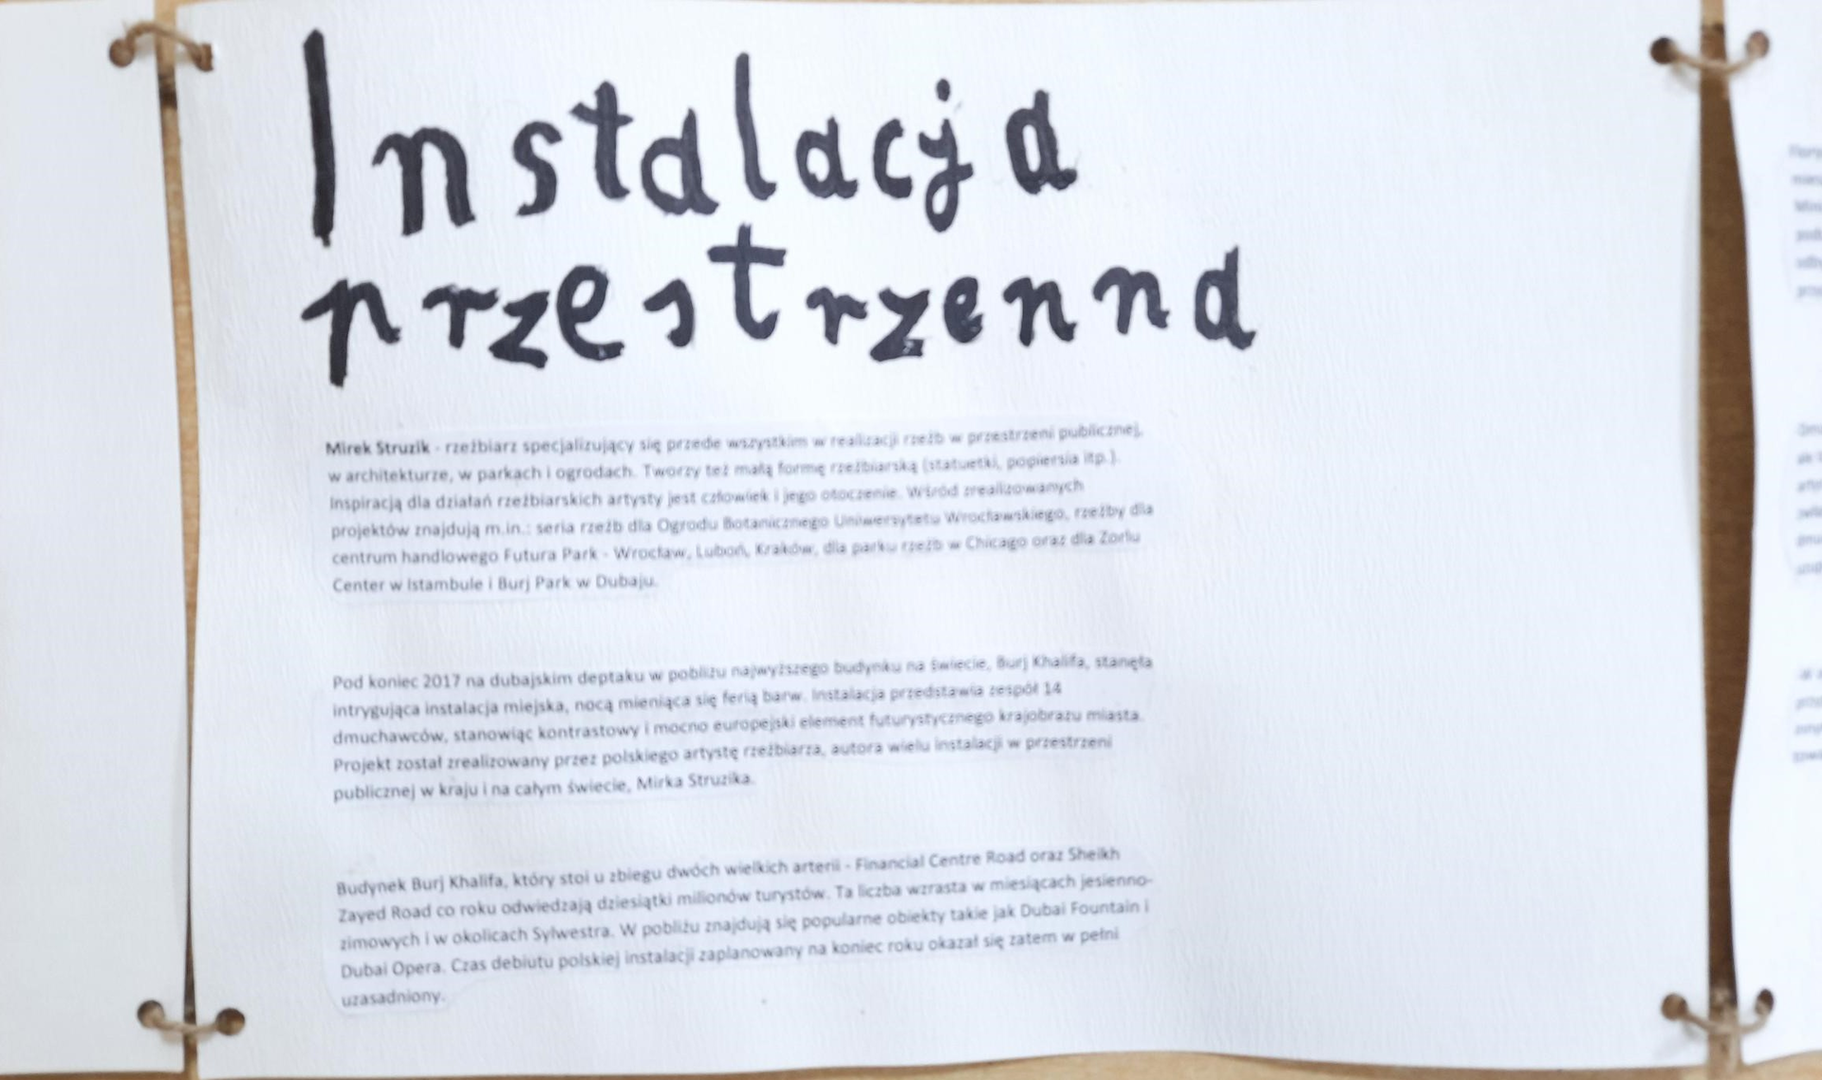 Instalacja
przestrzenna
Mirek Struzik - rzeźbiarz specjalizujący się przede wszystkim w realizacji rzeźb w przestrzeni publicznej,
w architekturze, w parkach i ogrodach. Tworzy też małą formę rzeźbiarską (statuetki, popiersia itp.).
Inspiracją dla działań rzeźbiarskich artysty jest człowiek i jego otoczenie. Wśród zrealizowanych
projektów znajdują m.in.: seria rzeźb dla Ogrodu Botanicznego Uniwersytetu Wrocławskiego, rzeźby dla
centrum handlowego Futura Park - Wrocław, Luboń, Kraków, dla parku rzeźb w Chicago oraz dla Zorlu
Center w Istambule i Burj Park w Dubaju.
Pod koniec 2017 na dubajskim deptaku w pobliżu najwyższego budynku na świecie, Burj Khalifa, stanęła
intrygująca instalacja miejska, nocą mieniąca się ferią barw. Instalacja przedstawia zespół 14
dmuchawców, stanowiąc kontrastowy i mocno europejski element futurystycznego krajobrazu miasta.
Projekt został zrealizowany przez polskiego artystę rzeźbiarza, autora wielu instalacji w przestrzeni
publicznej w kraju i na całym świecie, Mirka Struzika.
Budynek Burj Khalifa, który stoi u zbiegu dwóch wielkich arterii - Financial Centre Road oraz Sheikh
Zayed Road co roku odwiedzają dziesiątki milionów turystów. Ta liczba wzrasta w miesiącach jesienno-
zimowych i w okolicach Sylwestra. W pobliżu znajdują się popularne obiekty takie jak Dubai Fountain i
Dubai Opera. Czas debiutu polskiej instalacji zaplanowany na koniec roku okazał się zatem w pełni
uzasadniony.